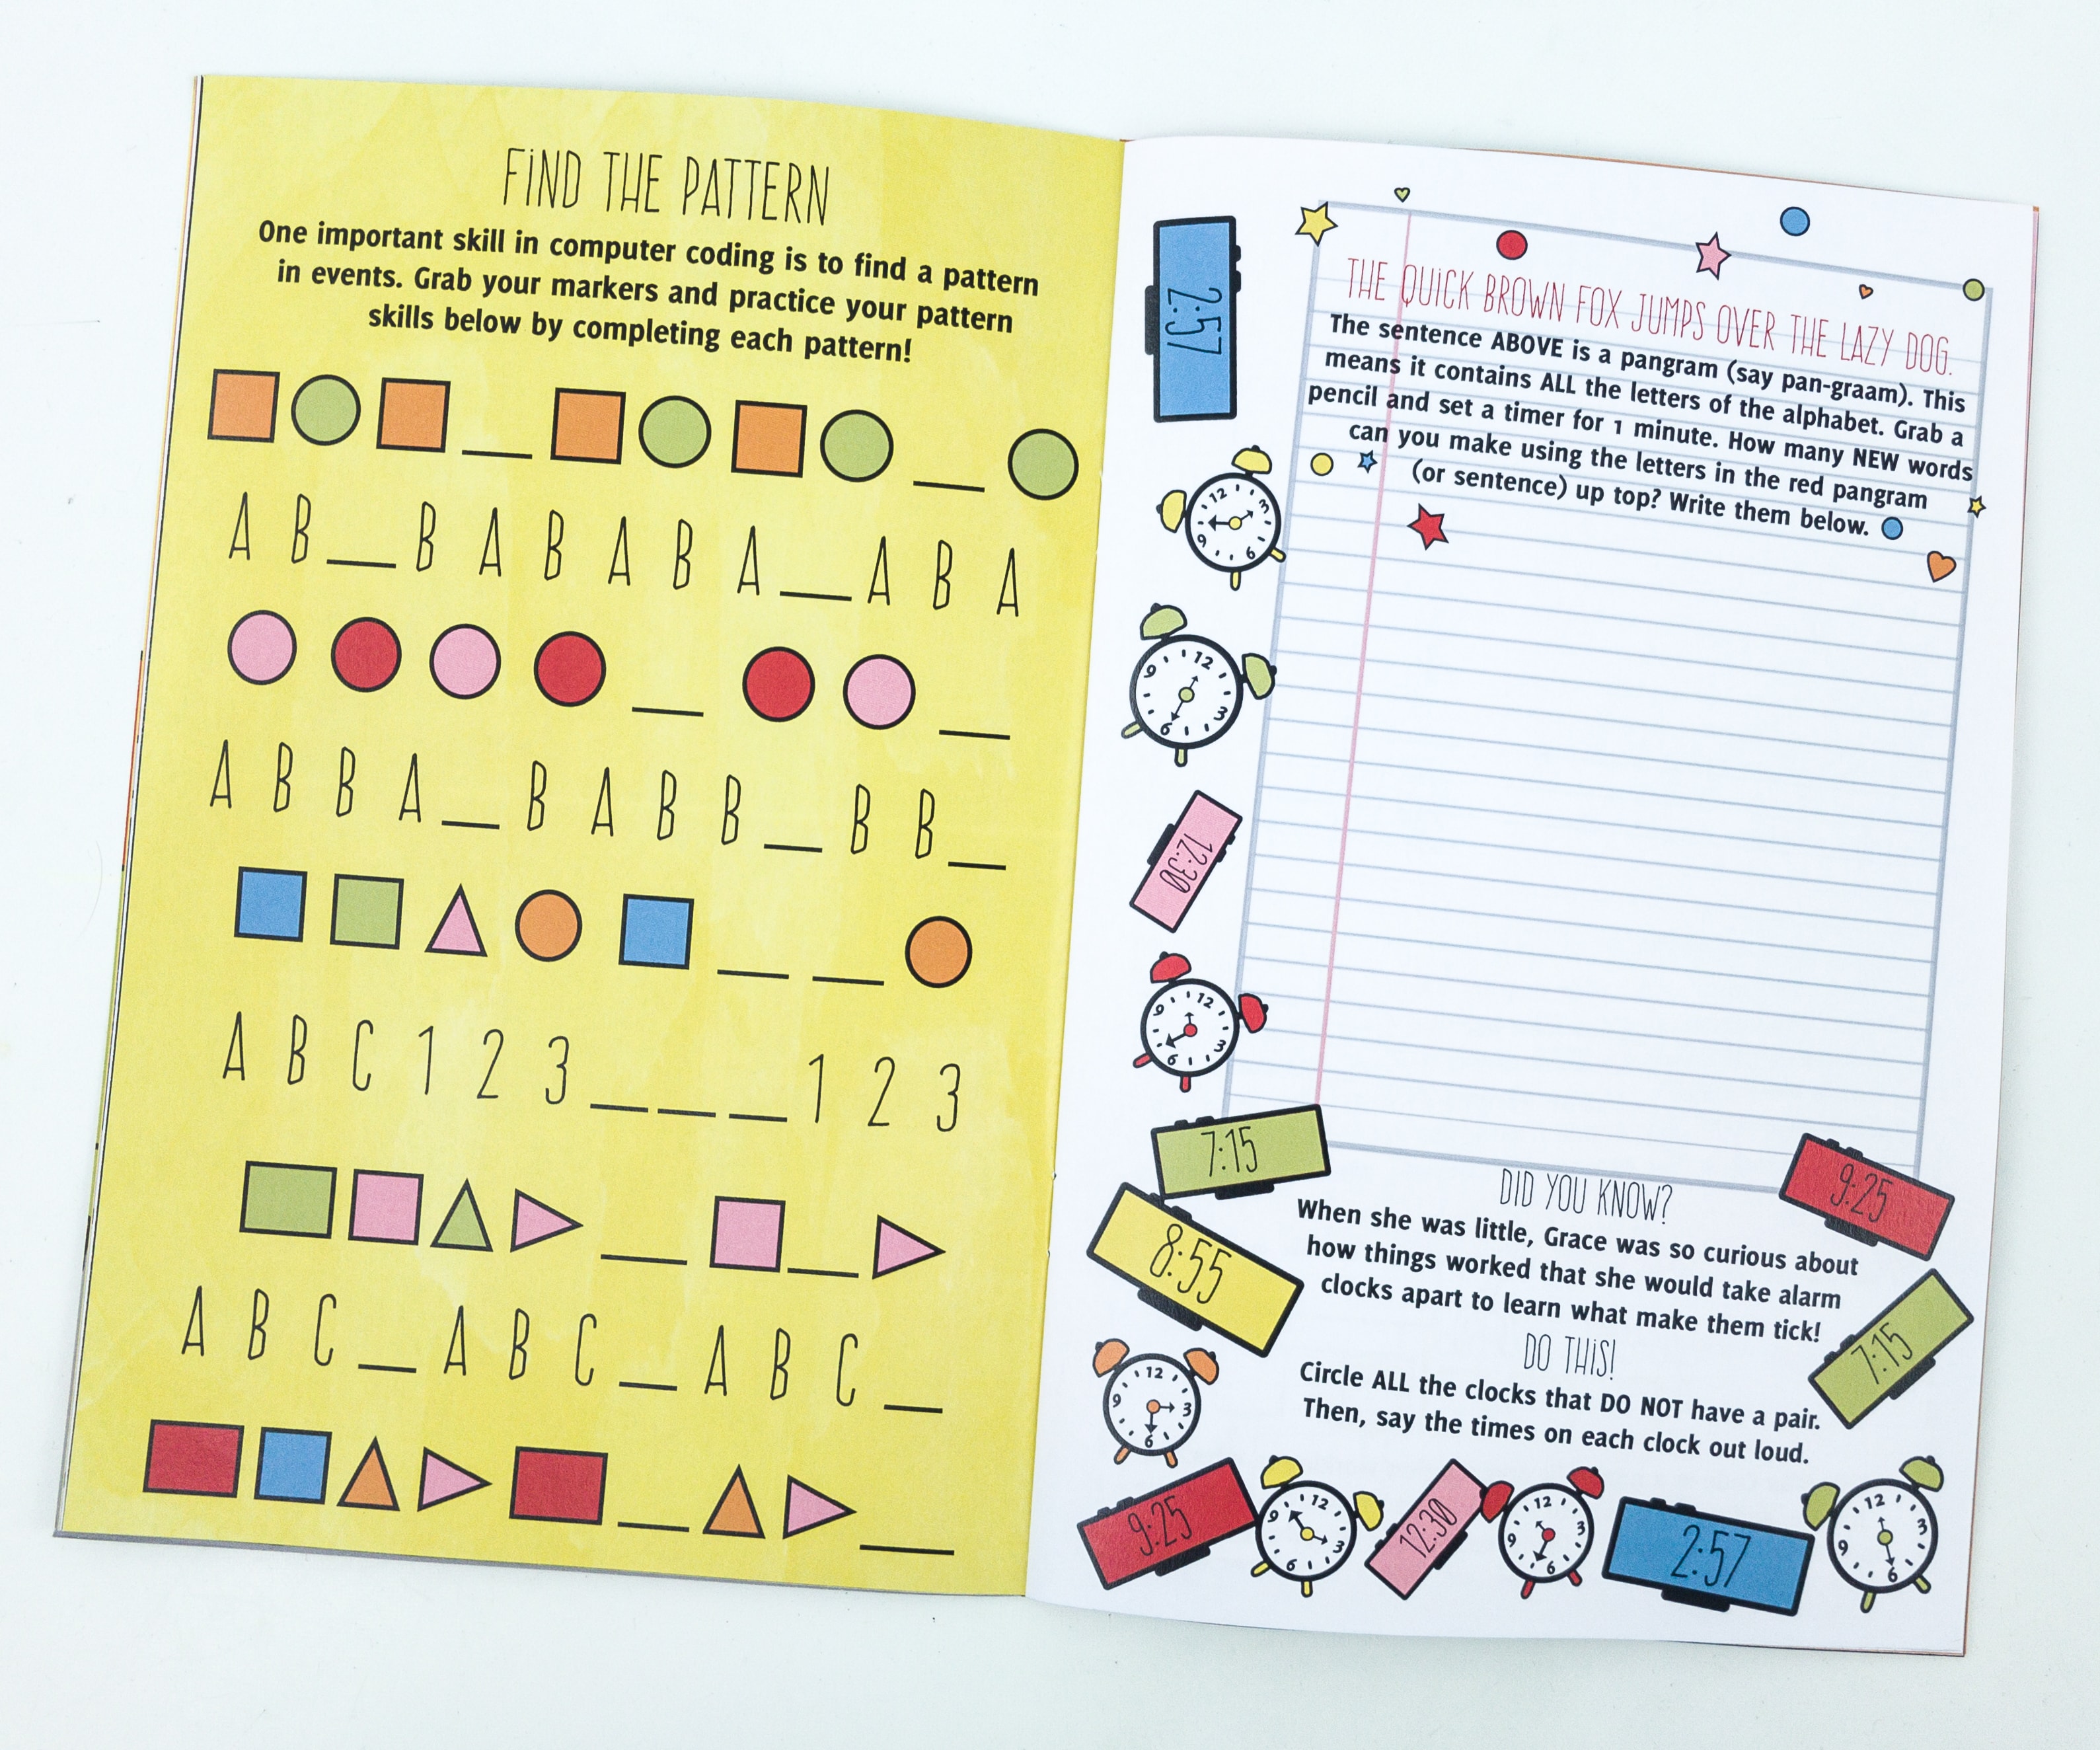 FIND THE PATTERN
One important skill in computer coding is to find a pattern
in events. Grab your markers and practice your pattern
skills below by completing each pattern!
A B __ B A B A B A __ A B A
A B B A __ B A B B __ B B __
A B C 1 2 3 __ __ __ 1 2 3
A B C __ A B C __ A B C __
2:57
THE QUICK BROWN FOX JUMPS OVER THE LAZY DOG.
The sentence ABOVE is a pangram (say pan-graam). This
means it contains ALL the letters of the alphabet. Grab a
pencil and set a timer for 1 minute. How many NEW words
can you make using the letters in the red pangram
(or sentence) up top? Write them below.
12 3 6 9
12 3 6 9
12:30
12 3 6 9
7:15
9:25
8:55
DID YOU KNOW?
When she was little, Grace was so curious about
how things worked that she would take alarm
clocks apart to learn what make them tick!
7:15
DO THIS!
Circle ALL the clocks that DO NOT have a pair.
Then, say the times on each clock out loud.
12 3 6 9
9:25
12 3 6 9
12:30
12 3 6 9
2:57
12 3 6 9